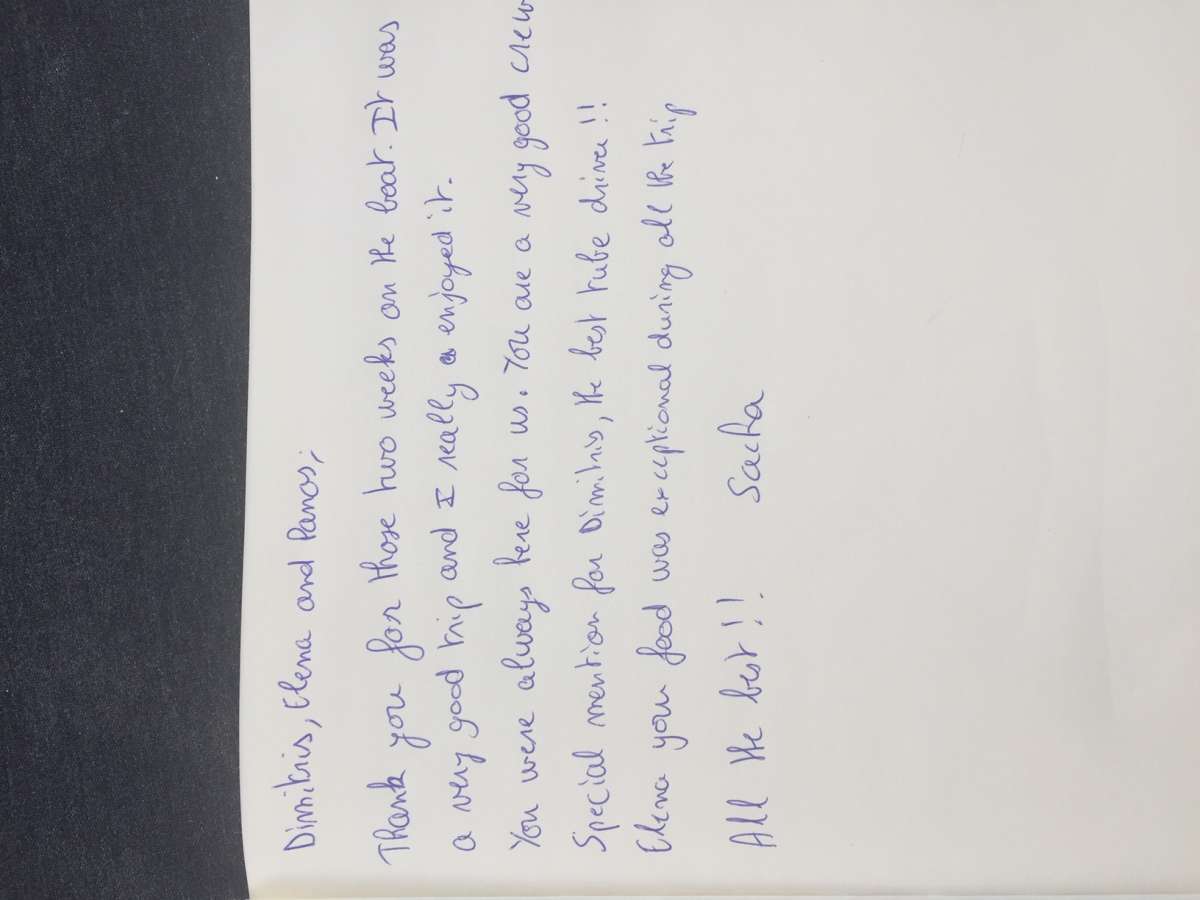 Dimitris, Elena and Panos;
Thank you for those two weeks on the boat. It was
a very good trip and I really enjoyed it.
You were always here for us. You are a very good crew
Special mention for Dimitris, the best tube driver!!
Elena your food was exceptional during all the trip
All the best!! Sacha